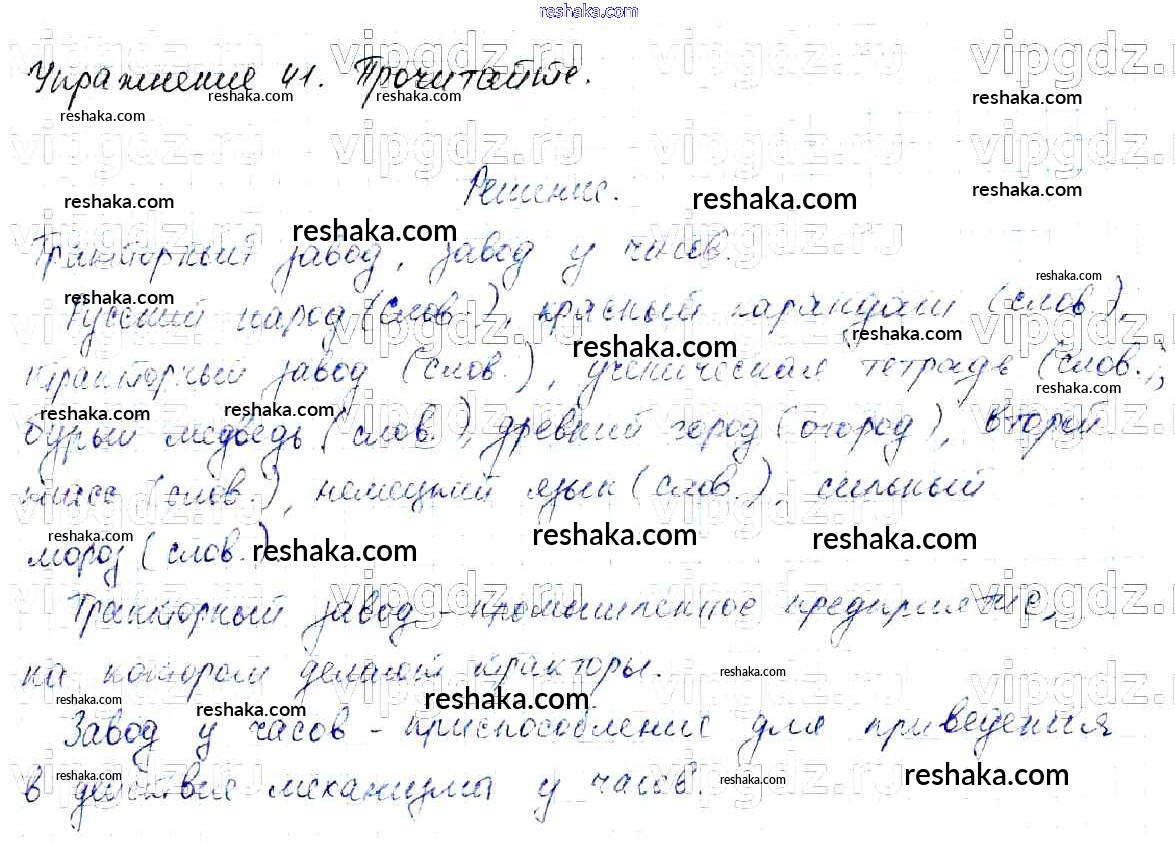 reshaka.com
Упражнение 41. Прочитайте.
Решение.
Тракторный завод, завод у часов.
Русский народ (слов.), красный карандаш (слов.),
тракторный завод (слов.), ученическая тетрадь (слов.),
бурый медведь (слов.), древний город (огород), второй
класс (слов.), немецкий язык (слов.), сильный
мороз (слов.).
Тракторный завод - промышленное предприятие,
на котором делают тракторы.
Завод у часов - приспособление для приведения
в действие механизма у часов.